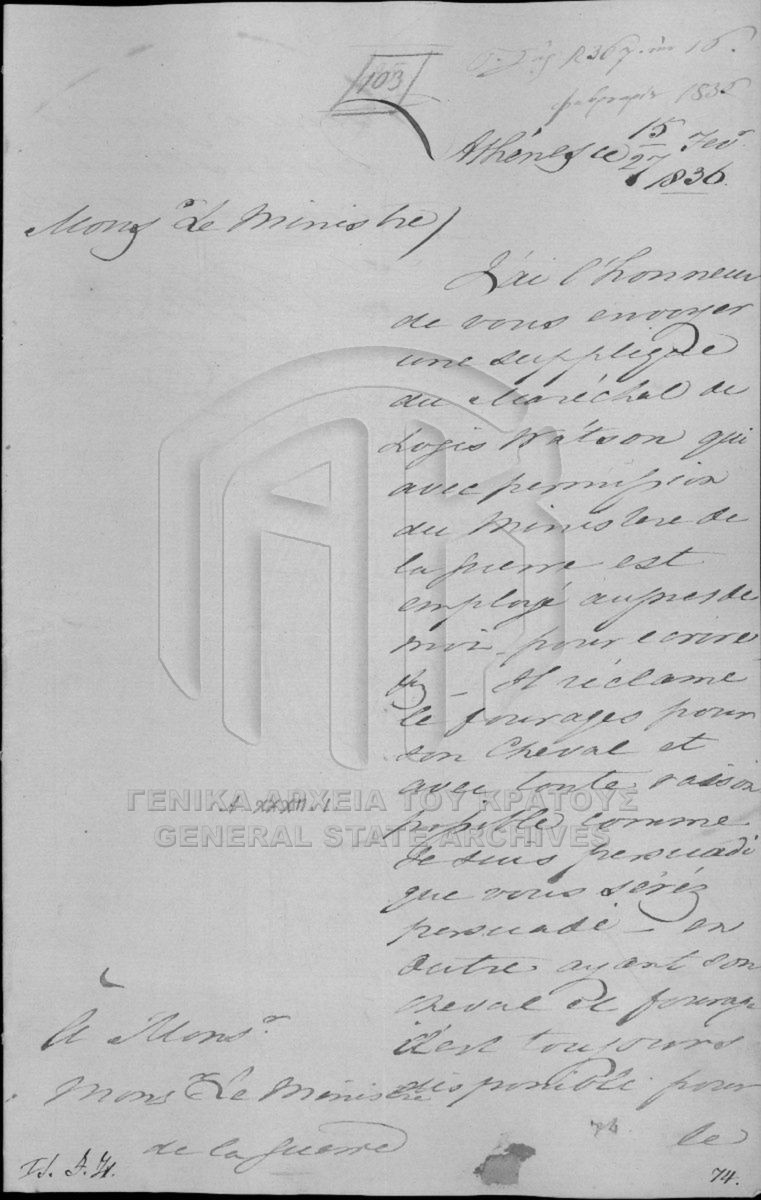 103
1836
Athènes ce 15/27 Fev.r
1836.
Mons.r Le Ministre
J'ai l'honneur
de vous envoyer
une supplique
du Maréchal de
Logis Watson qui
avec permission
du Ministere de
la guerre est
employé aupres de
moi pour ecrire
Il réclame
le fourages pour
son Cheval et
avec toute raison
possible comme
Je suis persuadé
que vous seréz
persuadé - en
Outre ayant son
Cheval et fourage
il est toujours
disponible pour
le
A Mons.r
Mons.r Le Ministre
de la guerre
74
74.
A XXXII 1
ΓΕΝΙΚΑ ΑΡΧΕΙΑ ΤΟΥ ΚΡΑΤΟΥΣ
GENERAL STATE ARCHIVES